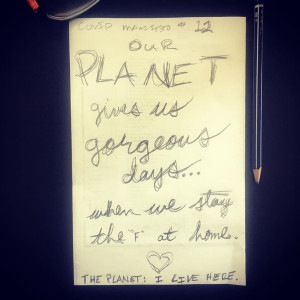 COVID MANIFESTO # 12
OUR
PLANET
gives us
gorgeous
days...
when we stay
the "F" at home.
THE PLANET: I LIVE HERE.